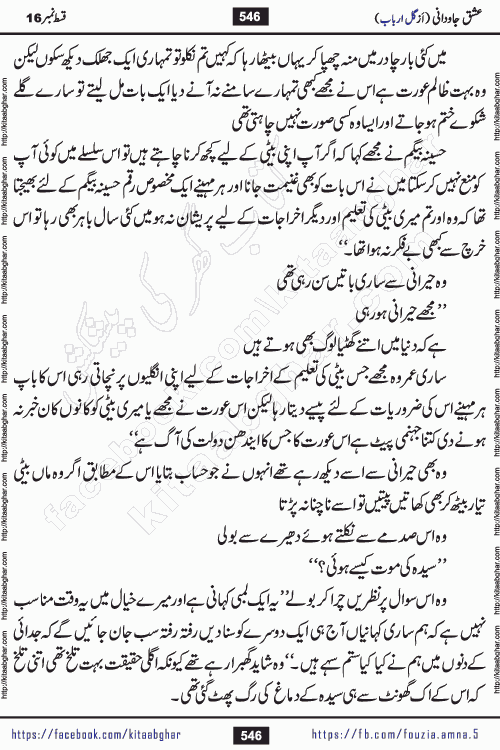 عشق جاودانی (از گل ارباب)
546
قسط نمبر 16
میں کئی بار چادر میں منہ چھپا کر یہاں بیٹھا رہا کہ کہیں تم نکلو تو تمہاری ایک جھلک دیکھ سکوں لیکن
وہ بہت ظالم عورت ہے اس نے مجھے کبھی تمہارے سامنے نہ آنے دیا ایک بات مل لیتے تو سارے گلے
شکوے ختم ہو جاتے اور ایسا وہ کسی صورت نہیں چاہتی تھی
حسینہ بیگم نے مجھے کہا کہ اگر آپ اپنی بیٹی کے لیے کچھ کرنا چاہتے ہیں تو اس سلسلے میں کوئی آپ
کو منع نہیں کر سکتا میں نے اس بات کو بھی غنیمت جانا اور ہر مہینے ایک مخصوص رقم حسینہ بیگم کے لئے بھیجتا
تھا کہ وہ اور تم میری بیٹی کی تعلیم اور دیگر اخراجات کے لیے پریشان نہ ہو میں کئی سال باہر بھی رہا تو اس
خرچ سے کبھی بے فکر نہ ہوا تھا۔‘‘
وہ حیرانی سے ساری باتیں سن رہی تھی
’’مجھے حیرانی ہو رہی
ہے کہ دنیا میں اتنے گھٹیا لوگ بھی ہوتے ہیں
ساری عمر وہ مجھے جس بیٹی کی تعلیم کے اخراجات کے لیے اپنی انگلیوں پر نچاتی رہی اس کا باپ
ہر مہینے اس کی ضروریات کے لئے پیسے دیتا رہا لیکن اس عورت نے مجھے یا میری بیٹی کو کانوں کان خبر نہ
ہونے دی کتنا جہنمی پیٹ ہے اس عورت کا جس کا ایندھن دولت کی آگ ہے‘‘
وہ بھی حیرانی سے اسے دیکھ رہے تھے انہوں نے جو حساب بتایا اس کے مطابق اگر وہ ماں بیٹی
تیار بیٹھ کر بھی کھاتیں پیتیں تو اسے ناچنا نہ پڑتا
وہ اس صدمے سے نکلتے ہوئے دھیرے سے بولی
’’سیدہ کی موت کیسے ہوئی؟‘‘
وہ اس سوال پر نظریں چرا کر بولے’’یہ ایک لمبی کہانی ہے اور میرے خیال میں یہ وقت مناسب
نہیں ہے کہ ہم ساری کہانیاں آج ہی ایک دوسرے کو سنا دیں رفتہ رفتہ سب جان جائیں گے کہ جدائی
کے دنوں میں ہم نے کیا کیا ستم سہے ہیں۔‘‘وہ شاید گھبرا رہے تھے کیونکہ اگلی حقیقت بہت تلخ تھی اتنی تلخ
کہ اس کے اک گھونٹ سے ہی سیدہ کے دماغ کی رگ پھٹ گئی تھی۔
https://facebook.com/kitaabghar
546
https://fb.com/fouzia.amna.5
http://kitaabghar.com